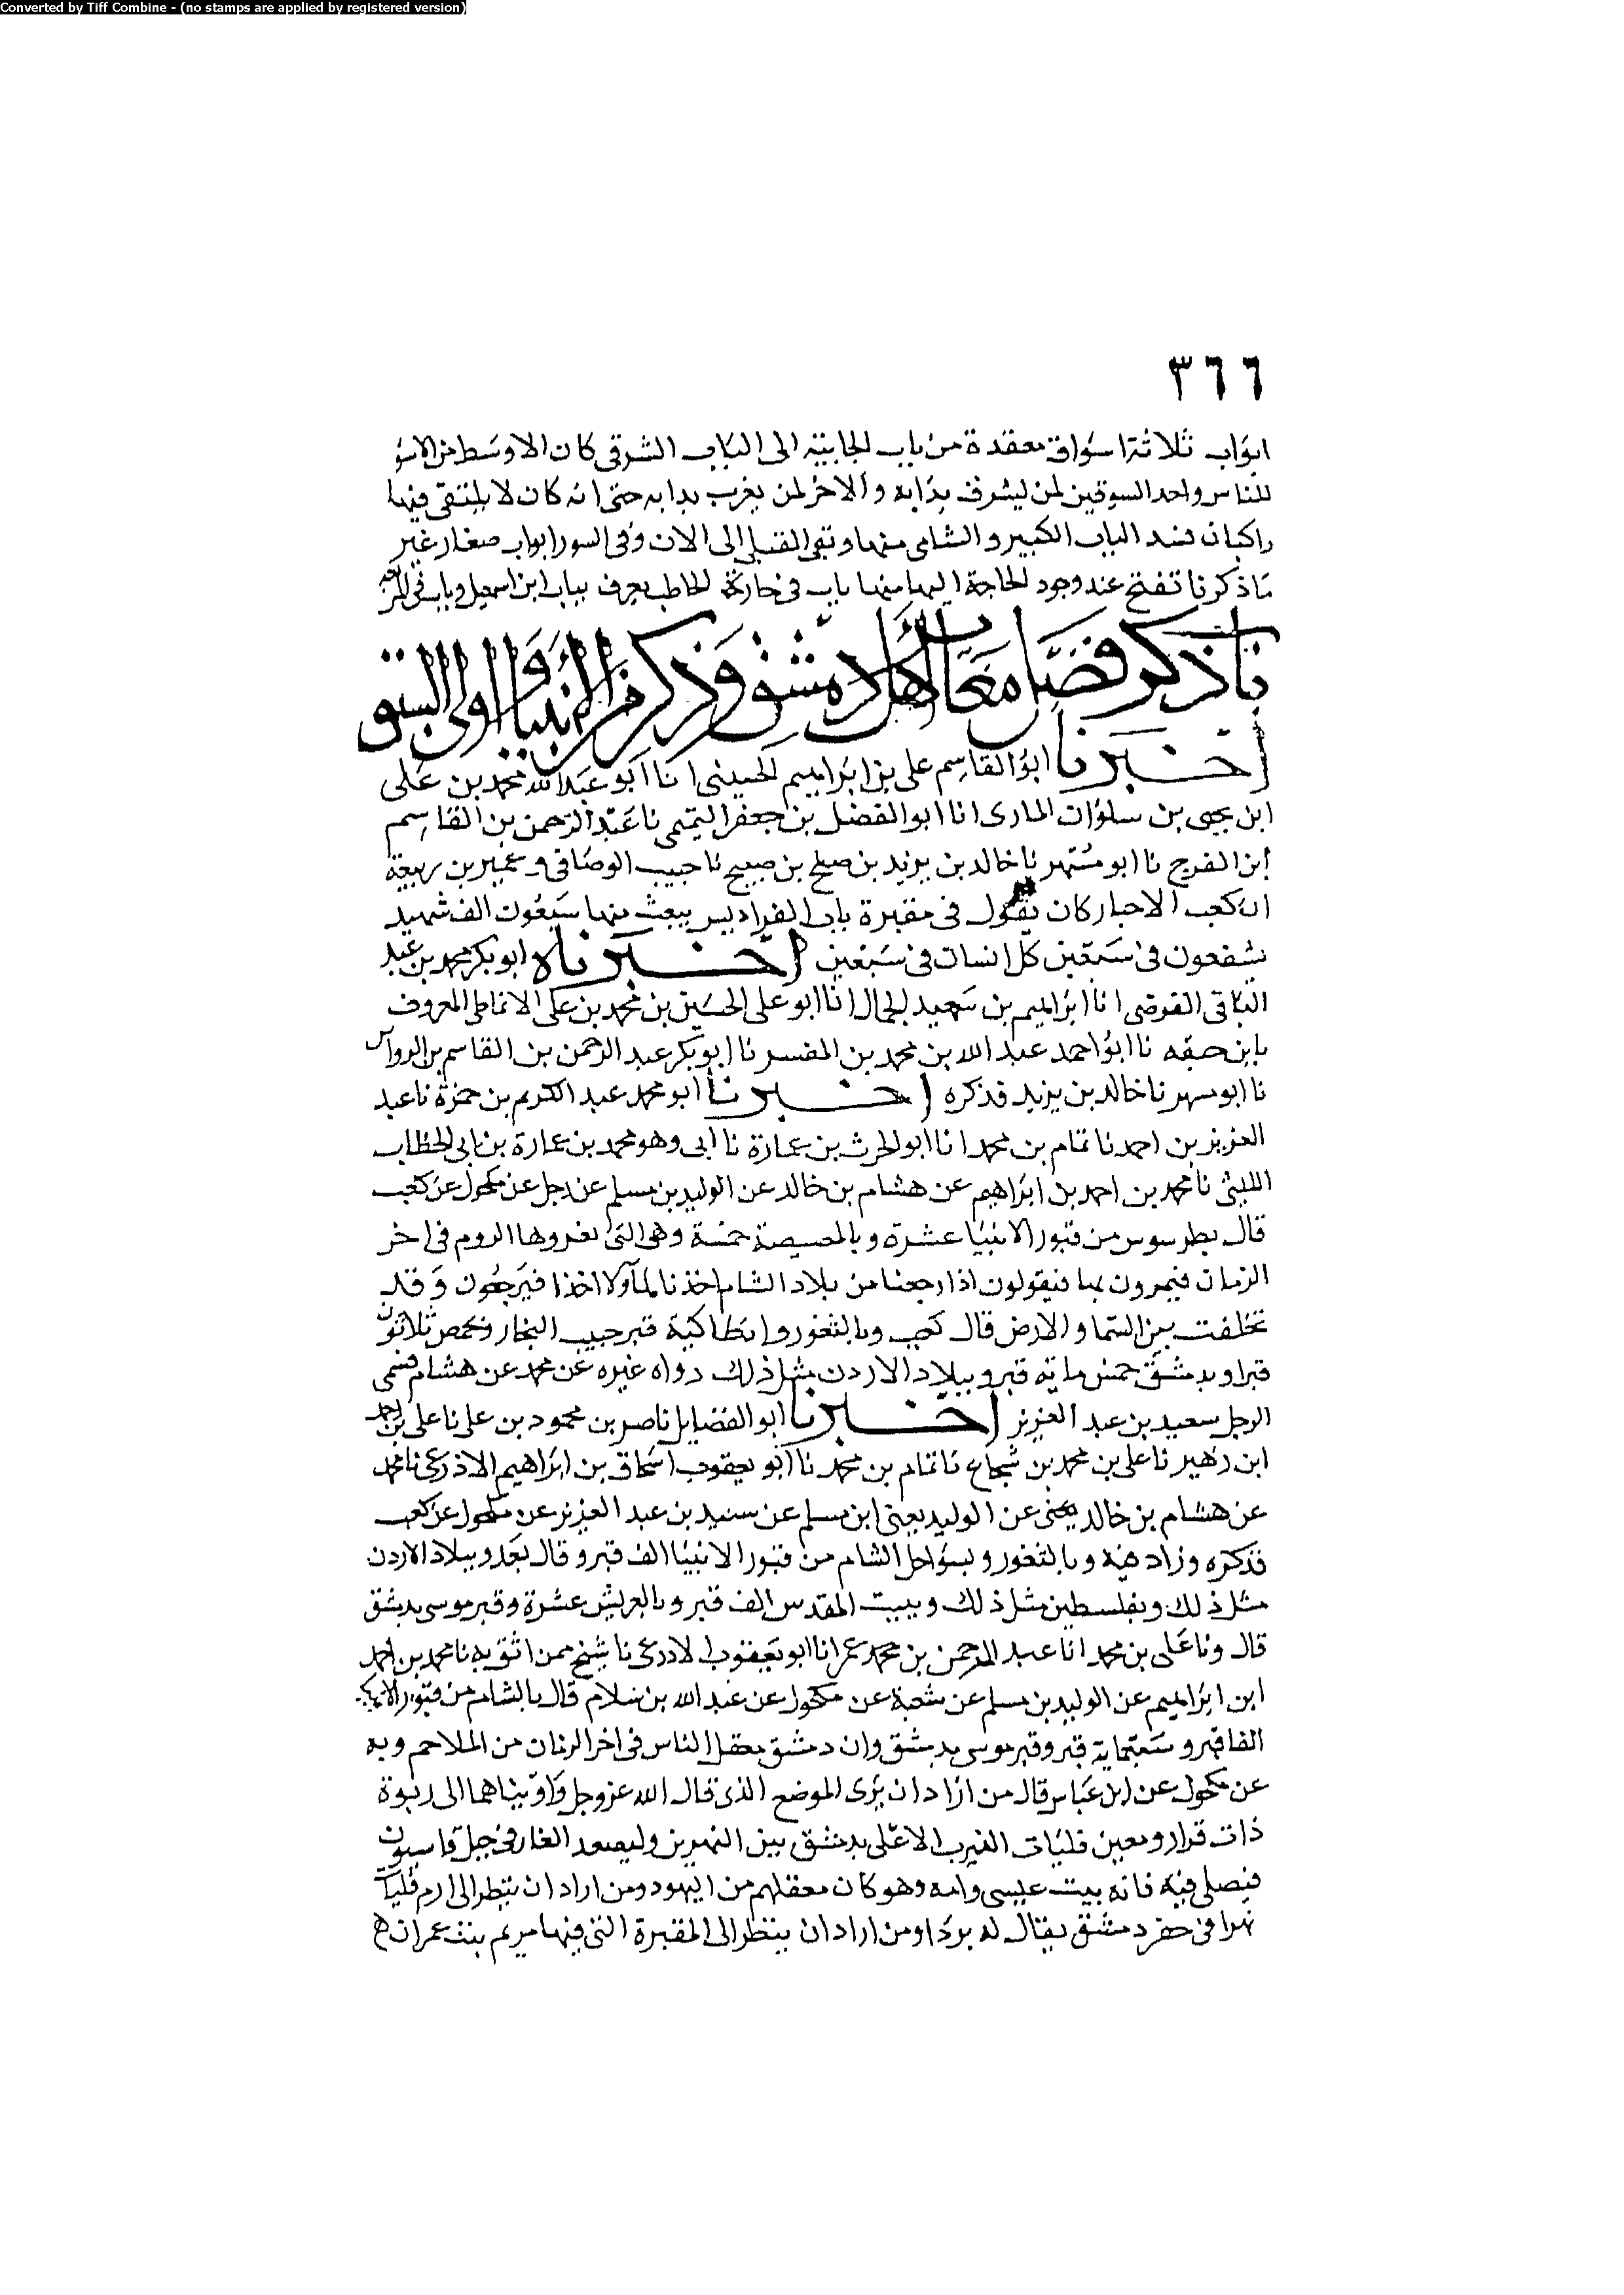 Converted by Tiff Combine - (no stamps are applied by registered version)
٣٦٦
ابواب ثلاثة اسواق معقدة من باب الجابية الى الباب الشرقي كان الاوسط من الاسو
للناس واحد السوقين لمن يشرق بدابه والاخر لمن يغرب بدابه حتى انه كان لا يلتقي فيها
راكبان فسد الباب الكبير والشامي منها وبقي القبلي الى الان وفي السور ابواب صغار غير
ما ذكرنا تفتح عند وجود الحاجة اليها منها باب في حارة الحاطب يعرف بباب ابن اسمعيل وباب في المربعه
باب ذكر فضل مقابر اهل دمشق وذكر من بها من الانبياء واولي السبق
اخبرنا ابو القاسم علي بن ابراهيم الحسيني انا ابو عبد الله محمد بن علي
ابن يحيى بن سلوان المازي انا ابو الفضل بن جعفر التميمي نا عبد الرحمن بن القاسم
ابن الفرج نا ابو مسهر نا خالد بن يزيد بن صلح بن صبيح نا حبيب الوصافي وعمير بن ربيعة
ان كعب الاحبار كان يقول في مقبرة باب الفراديس يبعث منها سبعون الف شهيد
يشفعون في سبعين كل انسان في سبعين اخبرناه ابو بكر محمد بن عبد
الباقي الفرضي انا ابراهيم بن سعيد الحبال انا ابو علي الحسين بن محمد بن علي الانماطي المعروف
بابن ابو احمد عبد الله بن محمد بن المفسر نا ابو بكر عبد الرحمن بن القاسم بن الرواس
نا ابو مسهر نا خالد بن يزيد فذكره اخبرنا ابو محمد عبد الكريم بن حمزة نا عبد
العزيز بن احمد نا تمام بن محمد انا ابو الحرث بن عمارة نا ابي وهو محمد بن عمارة بن ابي الخطاب
الليثي نا محمد بن احمد بن ابراهيم عن هشام بن خالد عن الوليد بن مسلم عن رجل عن مكحول عن كعب
قال بطرسوس من قبور الانبيا عشرة وبالمصيصة خمسة وهي التي يغزوها الروم في اخر
الزمان فيمرون بها فيقولون اذا رجعنا من بلاد الشام اخذنا اخذا فيرجعون وقد
تحلقت بين السما والارض قال كعب وبالثغور وانطاكية قبر حبيب النجار وبحمص ثلاثون
قبرا وبدمشق خمس ماية قبر وببلاد الاردن مثل ذلك رواه غيره عن محمد عن هشام فسمى
الرجل سعيد بن عبد العزيز اخبرنا ابو الفضايل ناصر بن محمود بن علي نا علي بن احمد
ابن زهير نا علي بن محمد بن شجاع نا تمام بن محمد نا ابو يعقوب اسحاق بن ابراهيم الاذرعي نا محمد
عن هشام بن خالد يعني عن الوليد يعني ابن مسلم عن سعيد بن عبد العزيز عن مكحول عن كعب
فذكره وزاد فيه وبالثغور وبسواحل الشام من قبور الانبيا الف قبر وقال بعد وببلاد الاردن
مثل ذلك وبفلسطين مثل ذلك وببيت المقدس الف قبر وبالعريش عشرة وقبر موسى بدمشق
قال ونا علي بن محمد انا عبد الرحمن بن محمد عمر انا ابو يعقوب الادرعي نا شيخ ممن اثق به نا محمد بن احمد
ابن ابراهيم عن الوليد بن مسلم عن شعبة عن مكحول عن عبد الله بن سلام قال بالشام من قبور الانبيا
الفا قبر وسبعماية قبر وقبر موسى بدمشق وان دمشق معقل الناس في اخر الزمان من الملاحم وبه
عن مكحول عن ابن عباس قال من اراد ان يرى الموضع الذي قال الله عز وجل واويناهما الى ربوة
ذات قرار ومعين فليات النيرب الاعلى بدمشق بين النهرين وليصعد الغار في جبل قاسيون
فيصلي فيه فانه بيت عيسى وامه وهو كان معقلهم من اليهود ومن اراد ان ينظر الى ارم فليات
نهرا في حفر دمشق يقال له بردا ومن اراد ان ينظر الى المقبرة التي فيها مريم بنت عمران